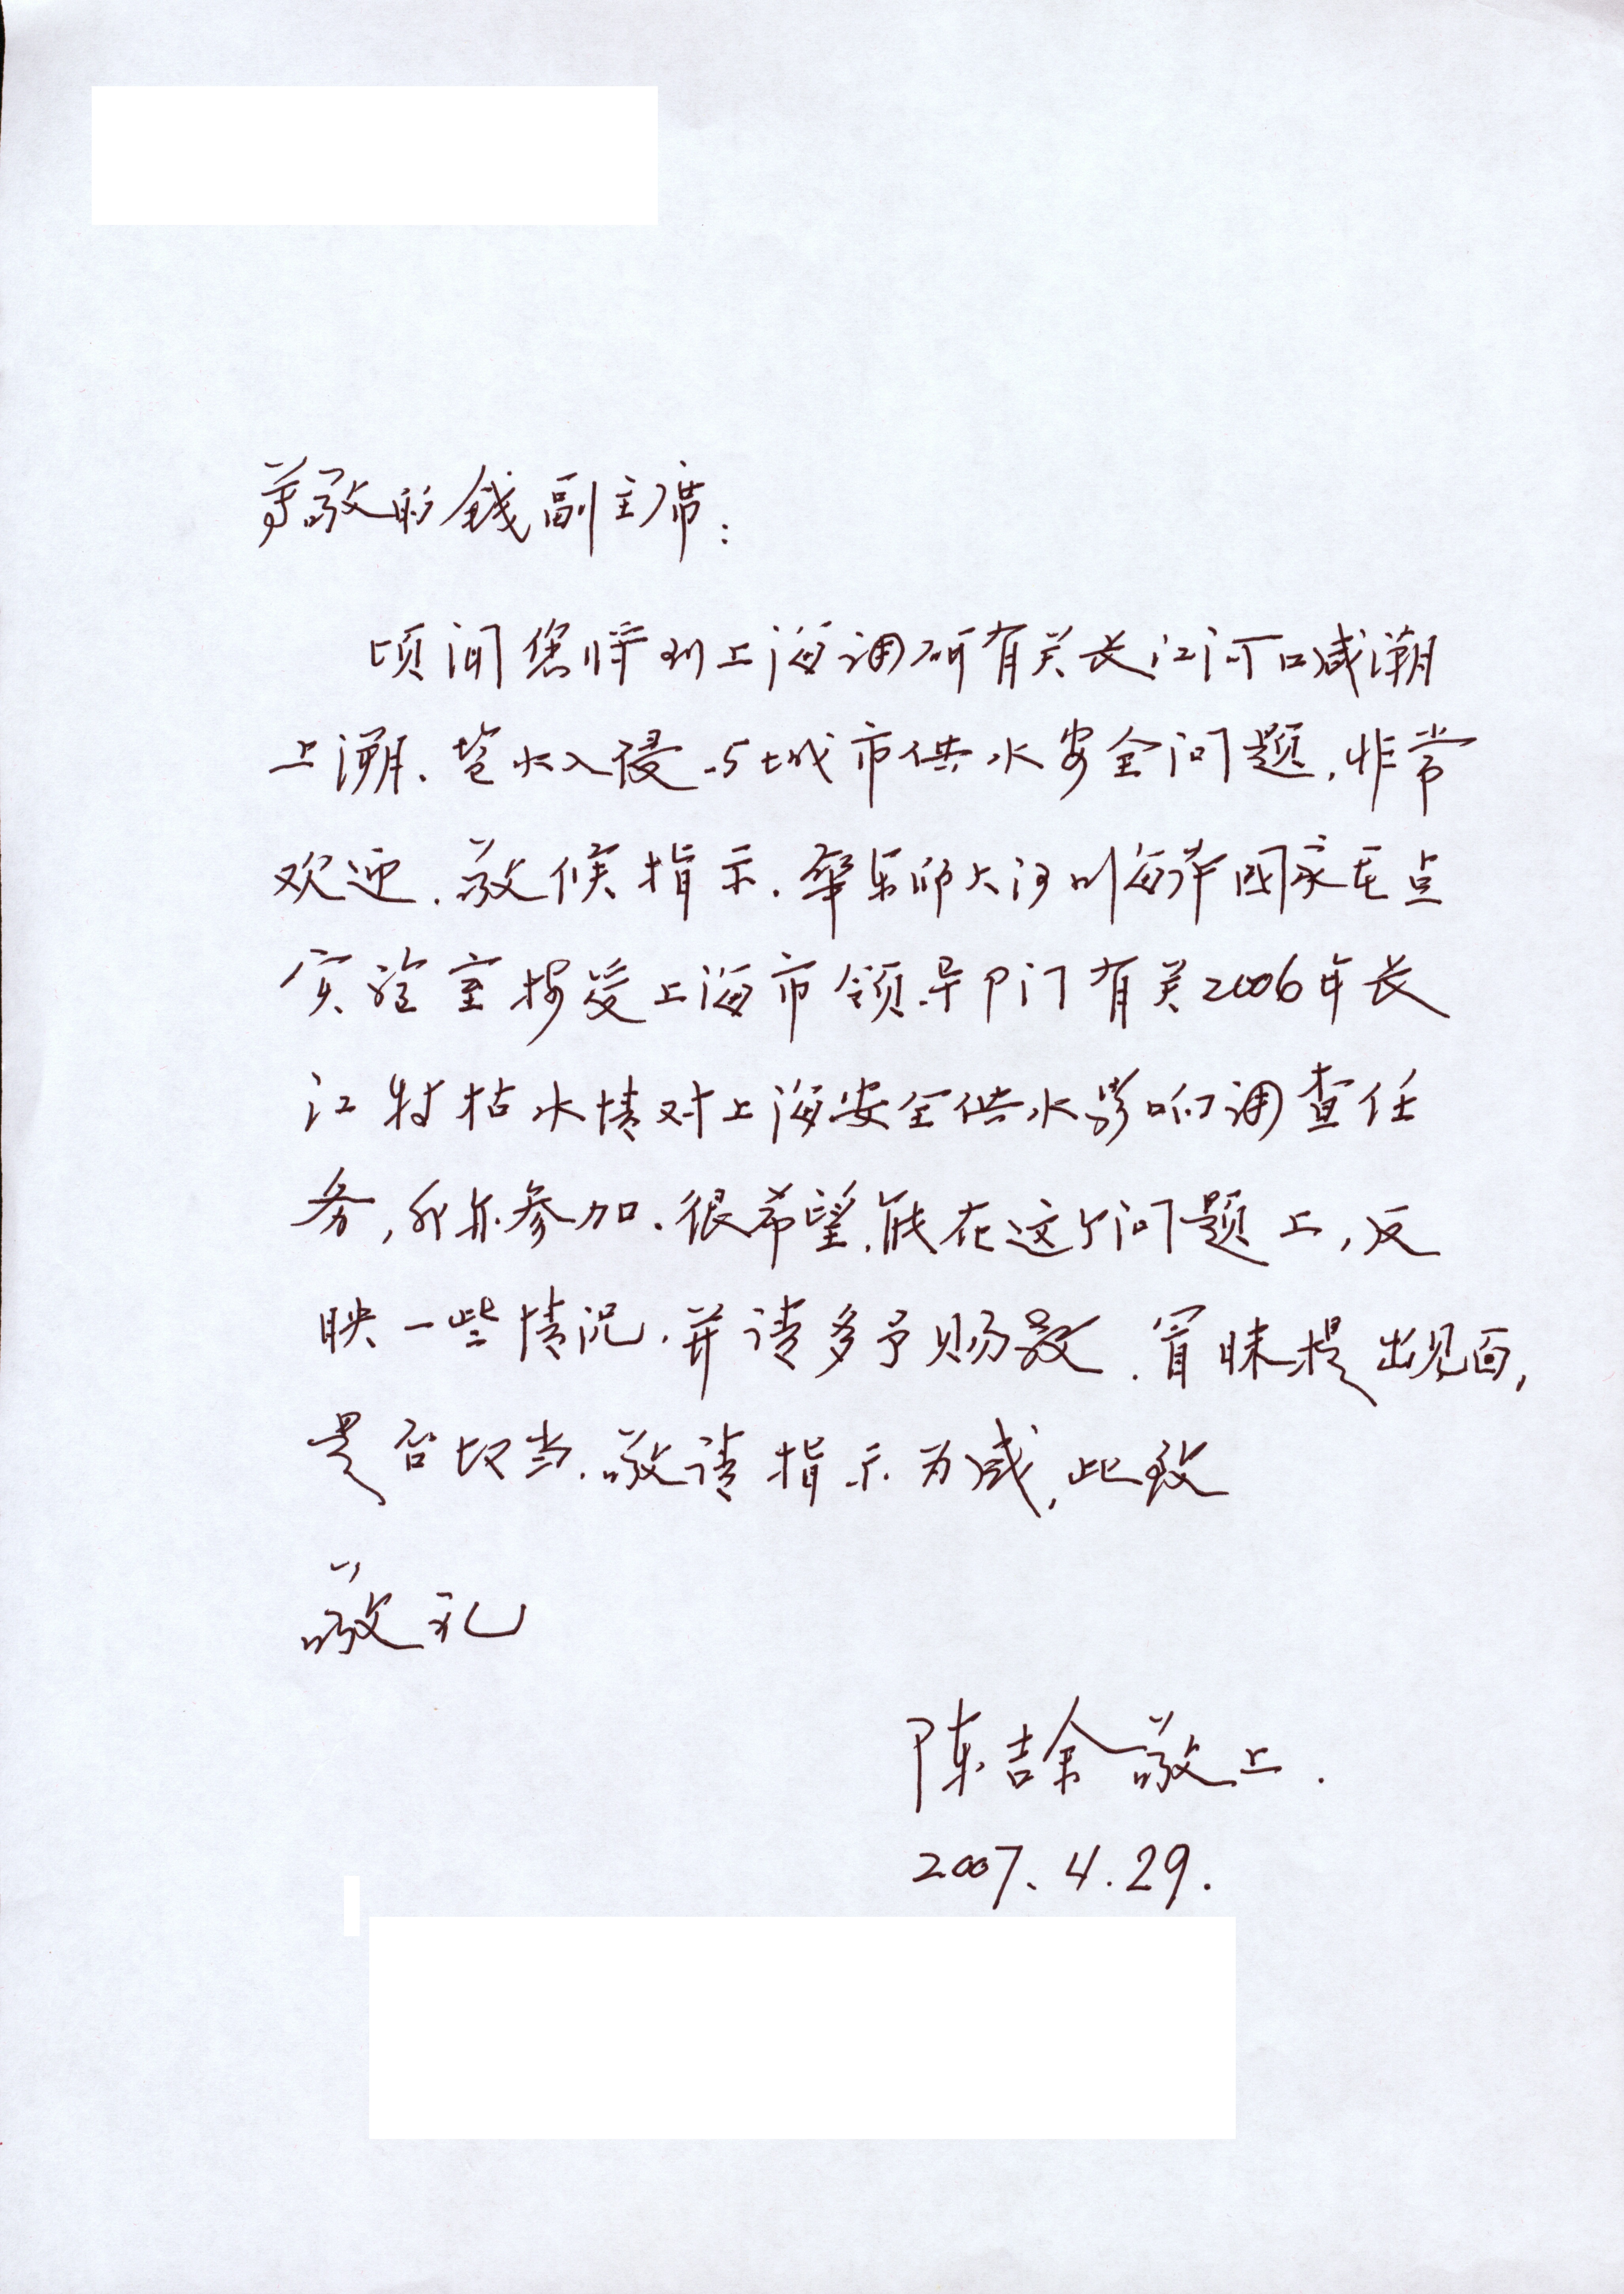 尊敬的钱副主席：
顷闻您将到上海调研有关长江河口咸潮
上溯、盐水入侵与城市供水安全问题，非常
欢迎，敬候指示。华东师大河口海岸国家重点
实验室接受上海市领导部门有关2006年长
江特枯水情对上海安全供水影响调查任
务，我亦参加。很希望能在这个问题上，反
映一些情况，并请多予赐教。冒昧提出见面，
是否切当，敬请指示为感，此致
敬礼
陈吉余敬上.
2007.4.29.